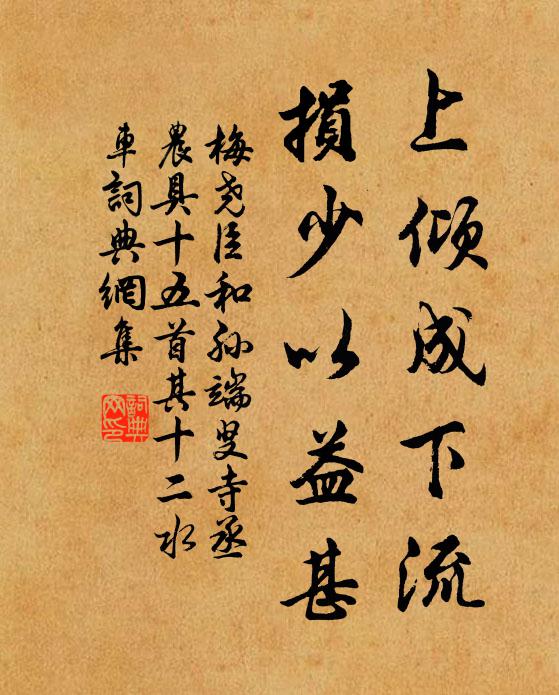 上傾成下流
損少以益甚
梅堯臣和孫端叟寺丞
農具十五首其十二水
車詞典網集
詞典
网印